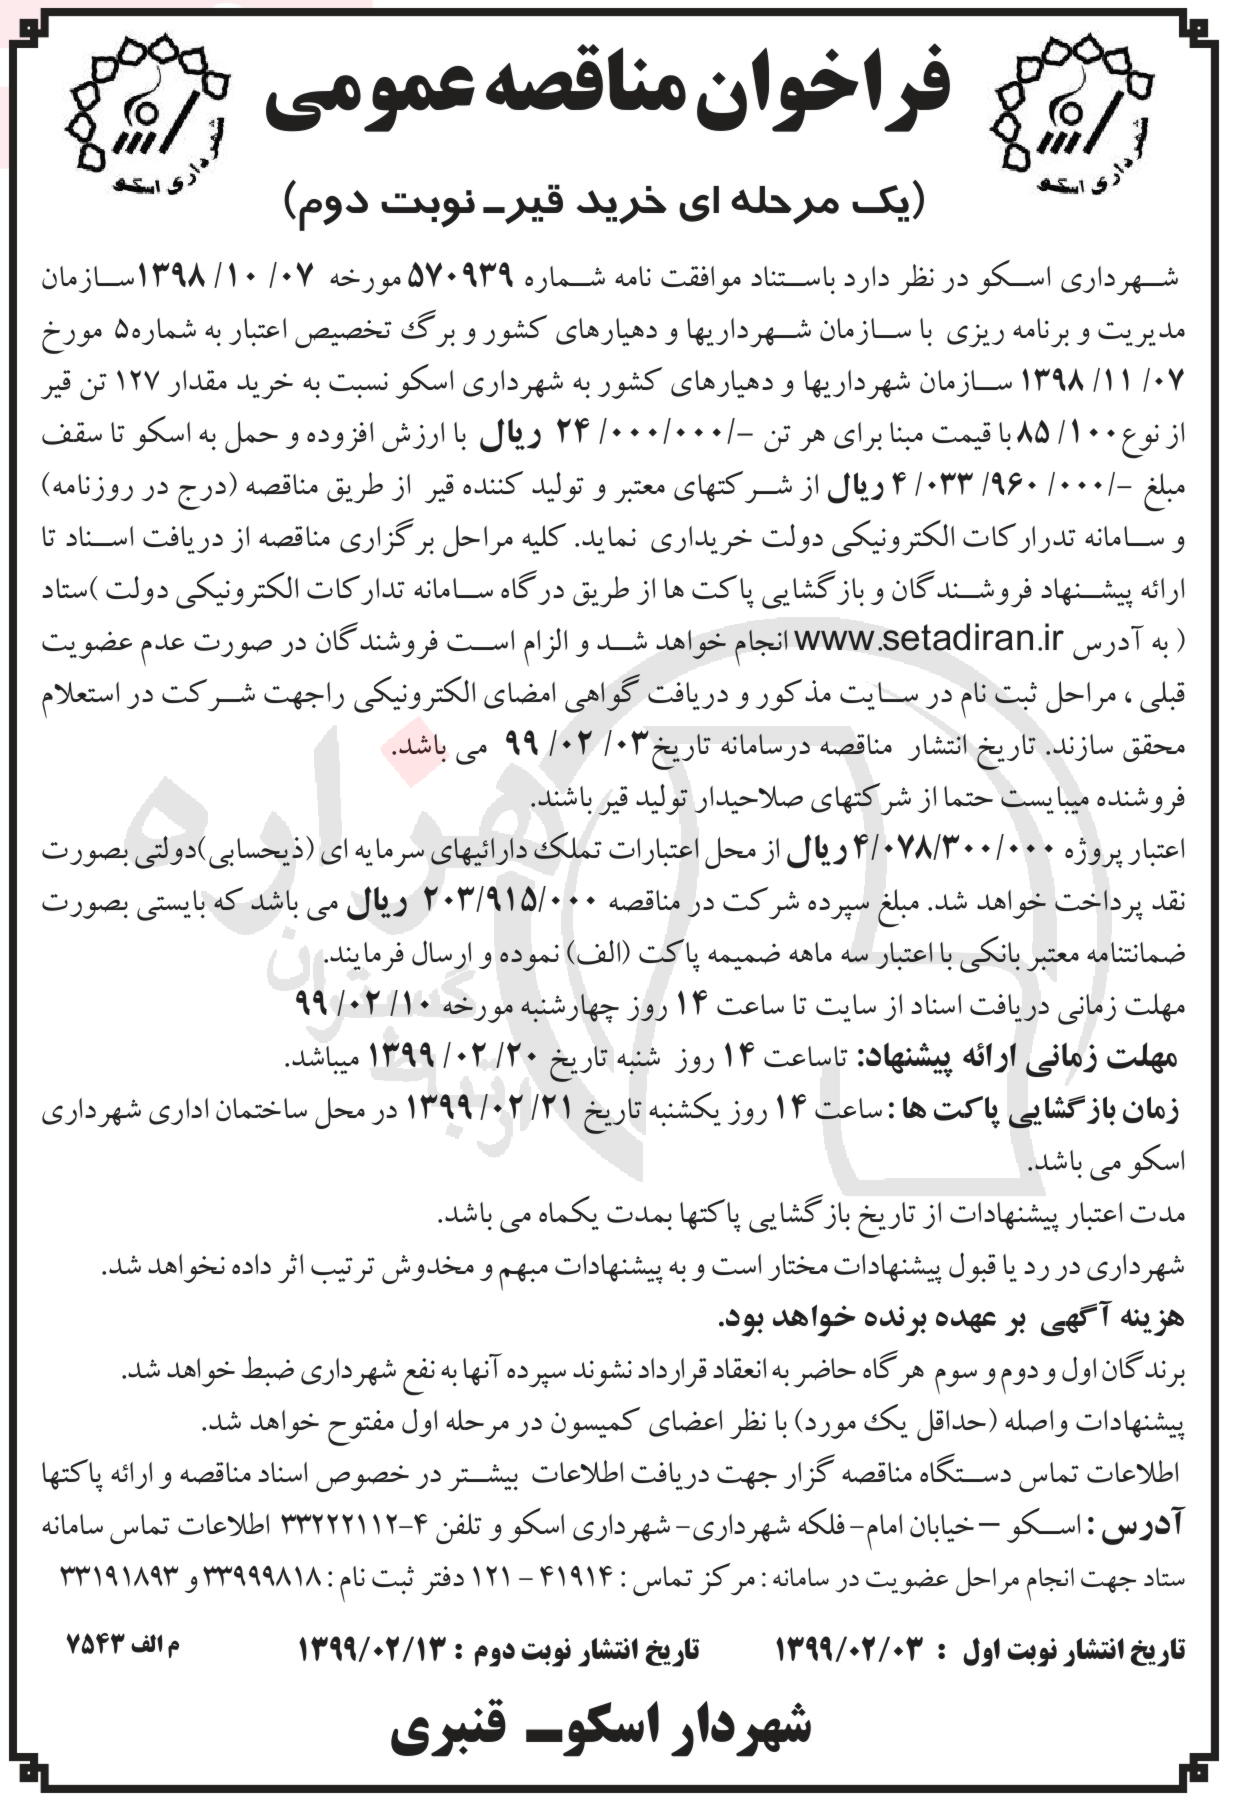 فراخوان مناقصه عمومی
(یک مرحله ای خرید قیر ـ نوبت دوم)
شهرداری اسکو
شهرداری اسکو
شهرداری اسکو در نظر دارد باستناد موافقت نامه شماره ۵۷۰۹۳۹ مورخه ۰۷/ ۱۰/ ۱۳۹۸سازمان
مدیریت و برنامه ریزی با سازمان شهرداریها و دهیارهای کشور و برگ تخصیص اعتبار به شماره۵ مورخ
۰۷/ ۱۱/ ۱۳۹۸ سازمان شهرداریها و دهیارهای کشور به شهرداری اسکو نسبت به خرید مقدار ۱۲۷ تن قیر
از نوع۱۰۰/ ۸۵ با قیمت مبنا برای هر تن -/۰۰۰/۰۰۰/ ۲۴ ریال با ارزش افزوده و حمل به اسکو تا سقف
مبلغ -/۰۰۰/ ۹۶۰/ ۰۳۳/ ۴ ریال از شرکتهای معتبر و تولید کننده قیر از طریق مناقصه (درج در روزنامه)
و سامانه تدرارکات الکترونیکی دولت خریداری نماید. کلیه مراحل برگزاری مناقصه از دریافت اسناد تا
ارائه پیشنهاد فروشندگان و بازگشایی پاکت ها از طریق درگاه سامانه تدارکات الکترونیکی دولت )ستاد
( به آدرس www.setadiran.ir انجام خواهد شد و الزام است فروشندگان در صورت عدم عضویت
قبلی ، مراحل ثبت نام در سایت مذکور و دریافت گواهی امضای الکترونیکی راجهت شرکت در استعلام
محقق سازند. تاریخ انتشار مناقصه درسامانه تاریخ۰۳/ ۰۲/ ۹۹ می باشد.
فروشنده میبایست حتما از شرکتهای صلاحیدار تولید قیر باشند.
اعتبار پروژه ۴/۰۷۸/۳۰۰/۰۰۰ ریال از محل اعتبارات تملک دارائیهای سرمایه ای (ذیحسابی)دولتی بصورت
نقد پرداخت خواهد شد. مبلغ سپرده شرکت در مناقصه ۲۰۳/۹۱۵/۰۰۰ ریال می باشد که بایستی بصورت
ضمانتنامه معتبر بانکی با اعتبار سه ماهه ضمیمه پاکت (الف) نموده و ارسال فرمایند.
مهلت زمانی دریافت اسناد از سایت تا ساعت ۱۴ روز چهارشنبه مورخه ۱۰/ ۰۲/ ۹۹
مهلت زمانی ارائه پیشنهاد: تاساعت ۱۴ روز شنبه تاریخ ۲۰/ ۰۲/ ۱۳۹۹ میباشد.
زمان بازگشایی پاکت ها : ساعت ۱۴ روز یکشنبه تاریخ ۲۱/ ۰۲/ ۱۳۹۹ در محل ساختمان اداری شهرداری
اسکو می باشد.
مدت اعتبار پیشنهادات از تاریخ بازگشایی پاکتها بمدت یکماه می باشد.
شهرداری در رد یا قبول پیشنهادات مختار است و به پیشنهادات مبهم و مخدوش ترتیب اثر داده نخواهد شد.
هزینه آگهی بر عهده برنده خواهد بود.
برندگان اول و دوم و سوم هرگاه حاضر به انعقاد قرارداد نشوند سپرده آنها به نفع شهرداری ضبط خواهد شد.
پیشنهادات واصله (حداقل یک مورد) با نظر اعضای کمیسون در مرحله اول مفتوح خواهد شد.
اطلاعات تماس دستگاه مناقصه گزار جهت دریافت اطلاعات بیشتر در خصوص اسناد مناقصه و ارائه پاکتها
آدرس : اسکو – خیابان امام- فلکه شهرداری- شهرداری اسکو و تلفن ۴-۳۳۲۲۲۱۱۲ اطلاعات تماس سامانه
ستاد جهت انجام مراحل عضویت در سامانه : مرکز تماس : ۴۱۹۱۴ - ۱۲۱ دفتر ثبت نام : ۳۳۹۹۹۸۱۸ و ۳۳۱۹۱۸۹۳
تاریخ انتشار نوبت اول : ۱۳۹۹/۰۲/۰۳ تاریخ انتشار نوبت دوم : ۱۳۹۹/۰۲/۱۳ م الف ۷۵۴۳
شهردار اسکو ـ قنبری
هزاره
گسترش